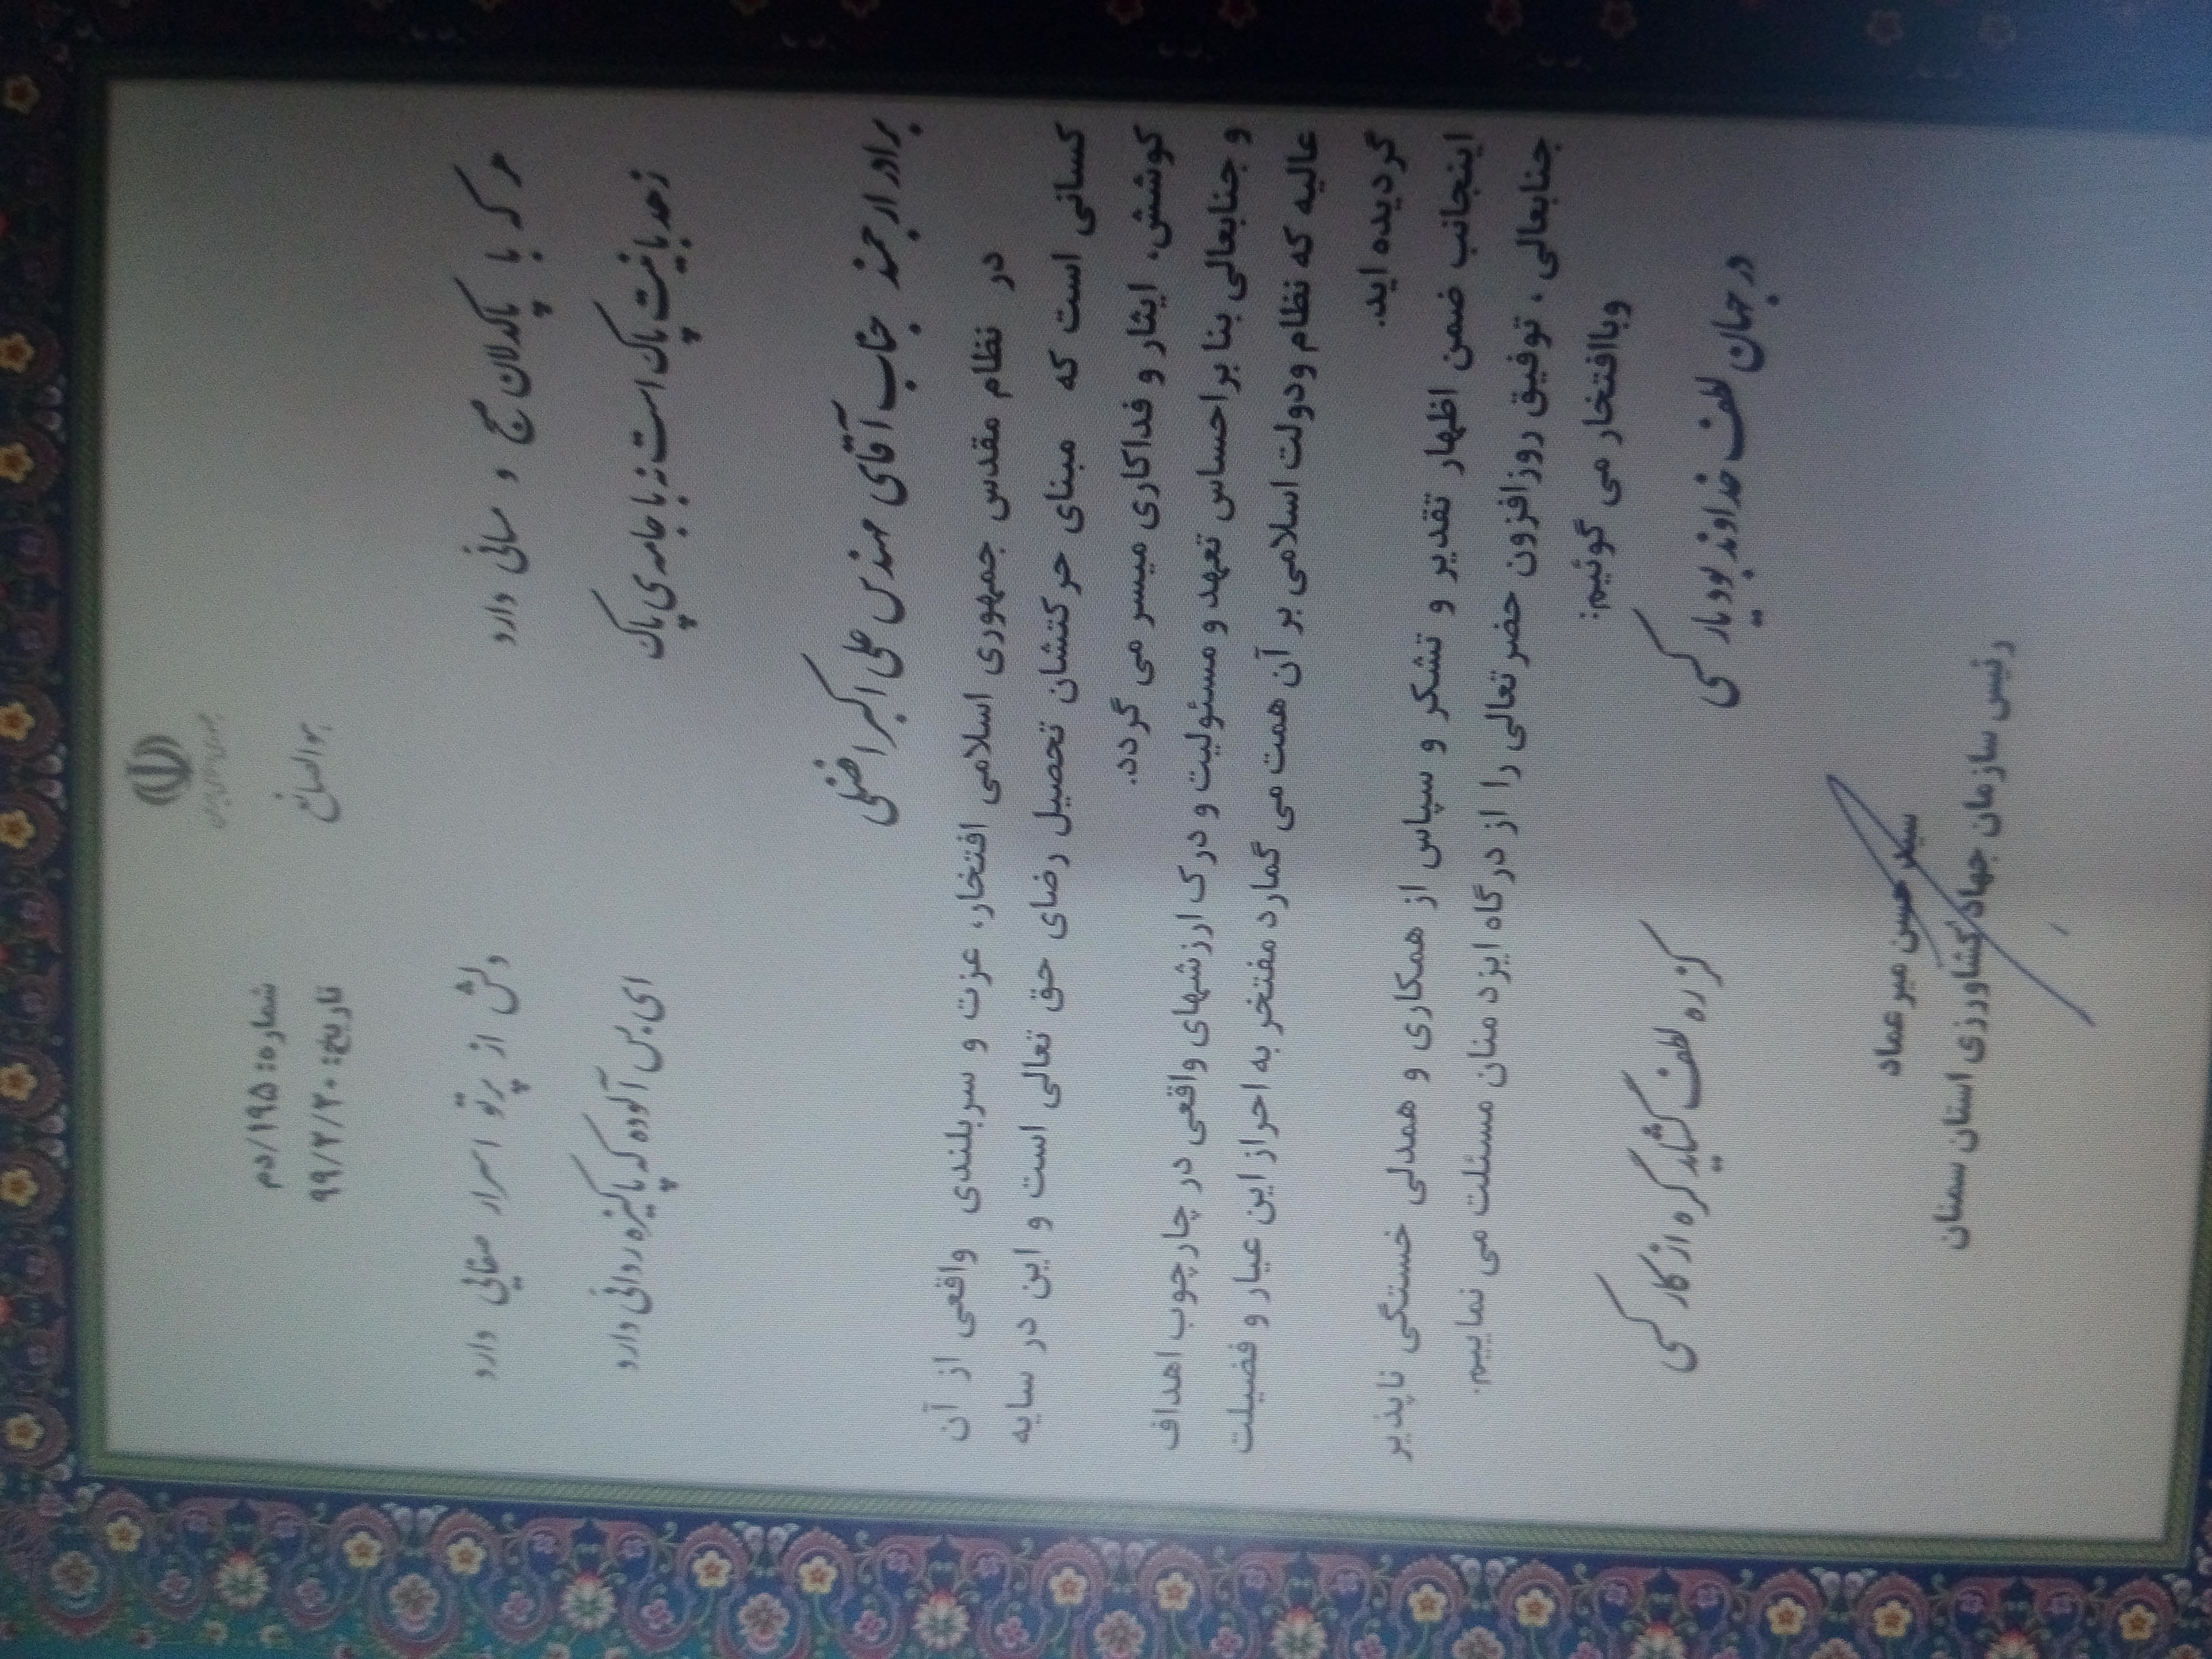 جمهوری اسلامی ایران
هو الصانع
شماره: ۱۹۵/دم
تاریخ: ۹۹/۲/۲۰
هر که با پاکدلان صبح و مسائی دارد
دلش از پرتو اسرار صفائی دارد
زهد با نیت پاک است نه با جامه ی پاک
ای بس آلوده که پاکیزه ردائی دارد
برادر ارجمند جناب آقای مهندس علی اکبر
در نظام مقدس جمهوری اسلامی افتخار، عزت و سربلندی واقعی از آن
کسانی است که مبنای حرکتشان تحصیل رضای حق تعالی است و این در سایه
کوشش، ایثار و فداکاری میسر می گردد.
و جنابعالی بنا بر احساس تعهد و مسئولیت و درک ارزشهای واقعی در چارچوب اهداف
عالیه که نظام ودولت اسلامی بر آن همت می گمارد مفتخر به احراز این عیار و فضیلت
گردیده اید.
اینجانب ضمن اظهار تقدیر و تشکر و سپاس از همکاری و همدلی خستگی ناپذیر
جنابعالی ، توفیق روزافزون حضرتعالی را از درگاه ایزد منان مسئلت می نماییم.
وباافتخار می گوئیم:
در جهان لطف خداوند بود یار کسی
کز ره لطف گشاید گره از کار کسی
سید حسن میر عماد
رئیس سازمان جهاد کشاورزی استان سمنان